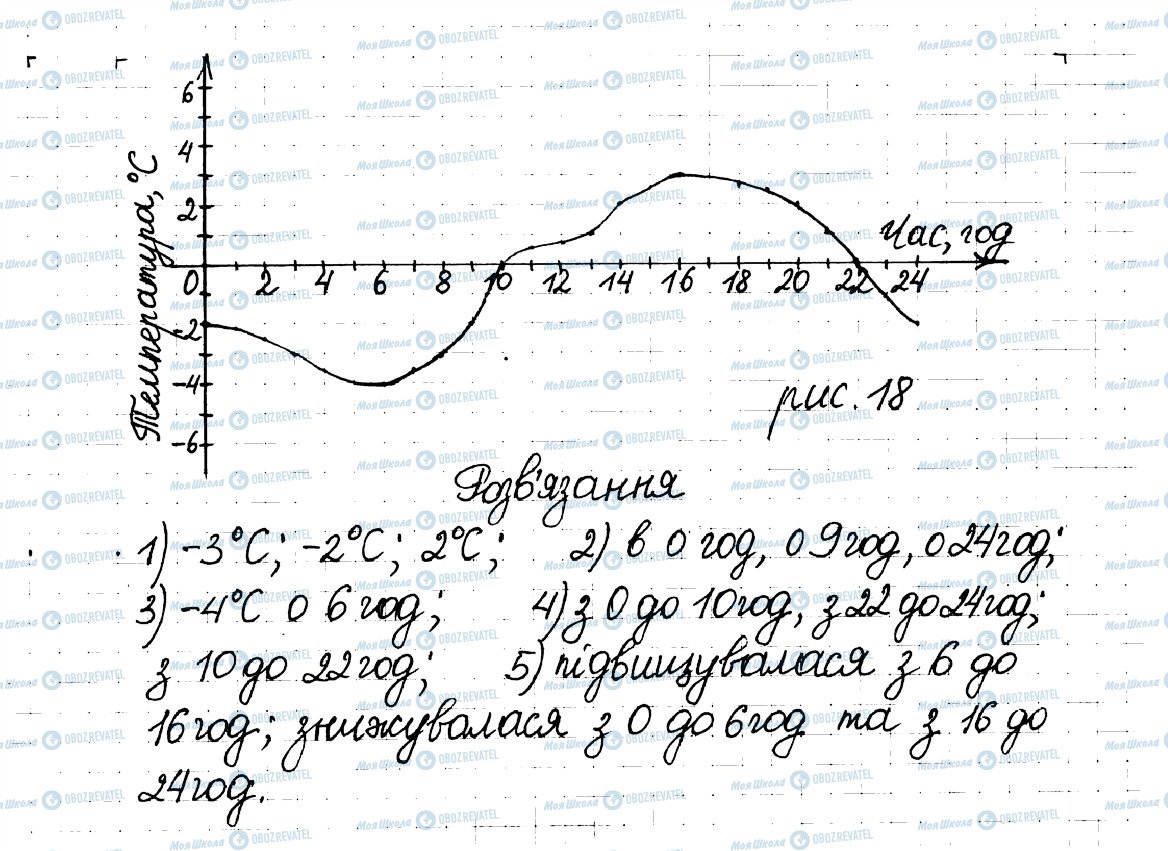 Температура, °C
6
4
2
0
-2
-4
-6
2 4 6 8 10 12 14 16 18 20 22 24
Час, год
рис. 18
Розв'язання
1) -3°C; -2°C; 2°C; 2) в 0 год, о 9 год, о 24 год;
3) -4°C о 6 год; 4) з 0 до 10 год, з 22 до 24 год;
з 10 до 22 год; 5) підвищувалася з 6 до
16 год; знижувалася з 0 до 6 год та з 16 до
24 год.
Моя Школа OBOZREVATEL